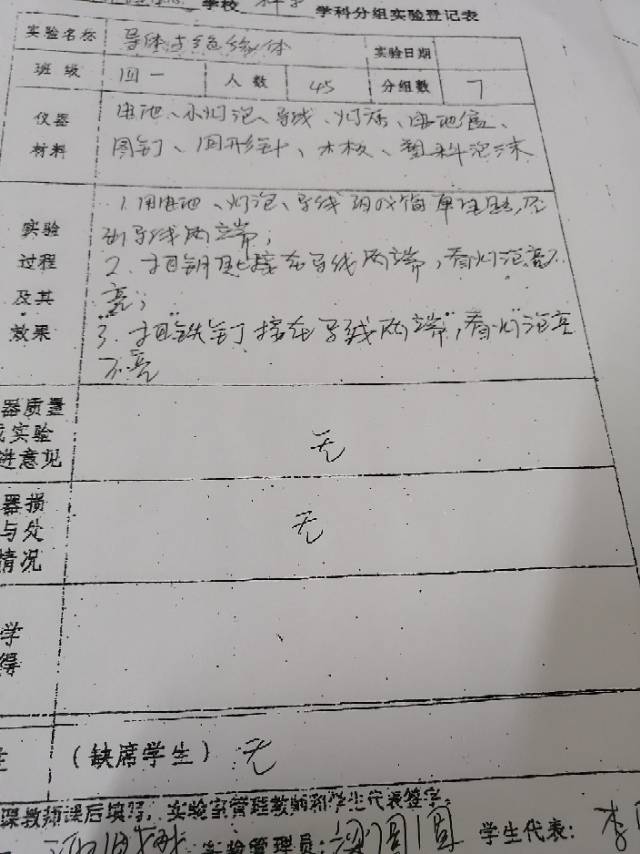 学校 科学 学科分组实验登记表
实验名称 导体与绝缘体 实验日期
班级 四一 人数 45 分组数 7
仪器 电池、小灯泡、导线、灯座、电池盒、
材料 图钉、回形针、木板、塑料泡沫
1. 用电池、灯泡、导线 简单电路,
实验 到导线两端;
过程 2. 把钥匙接在导线两端,看灯泡亮不
及其 亮;
效果 3. 把铁钉接在导线两端,看灯泡亮
不亮
器质量
实验 无
进意见
器损
与处 无
情况
学
得
(缺席学生) 无
课教师课后填写,实验室管理教师和学生代表签字。
实验管理员: 学生代表: 李